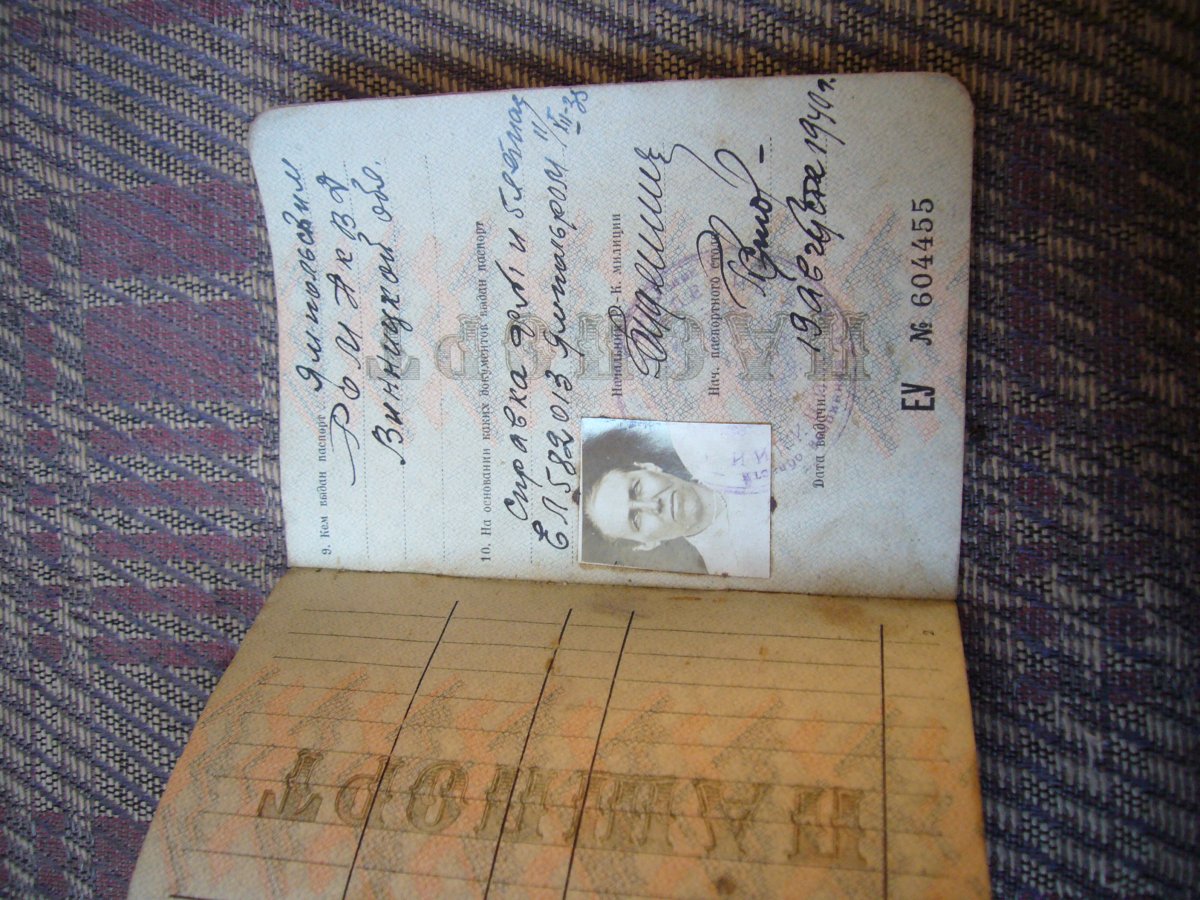 9. Кем выдан паспорт Ямпольским
РОМ НКВД
Винницкой обл.
10. На основании каких документов выдан паспорт
справка
ЕЛ 582013 Ямпольск РОМ 11/III-38
Начальник Р-К милиции
Нач. паспортного стола
Дата выдачи 19 августа 1940 г.
ЕУ № 604455
ПАСПОРТ
2
ПАШПОРТ